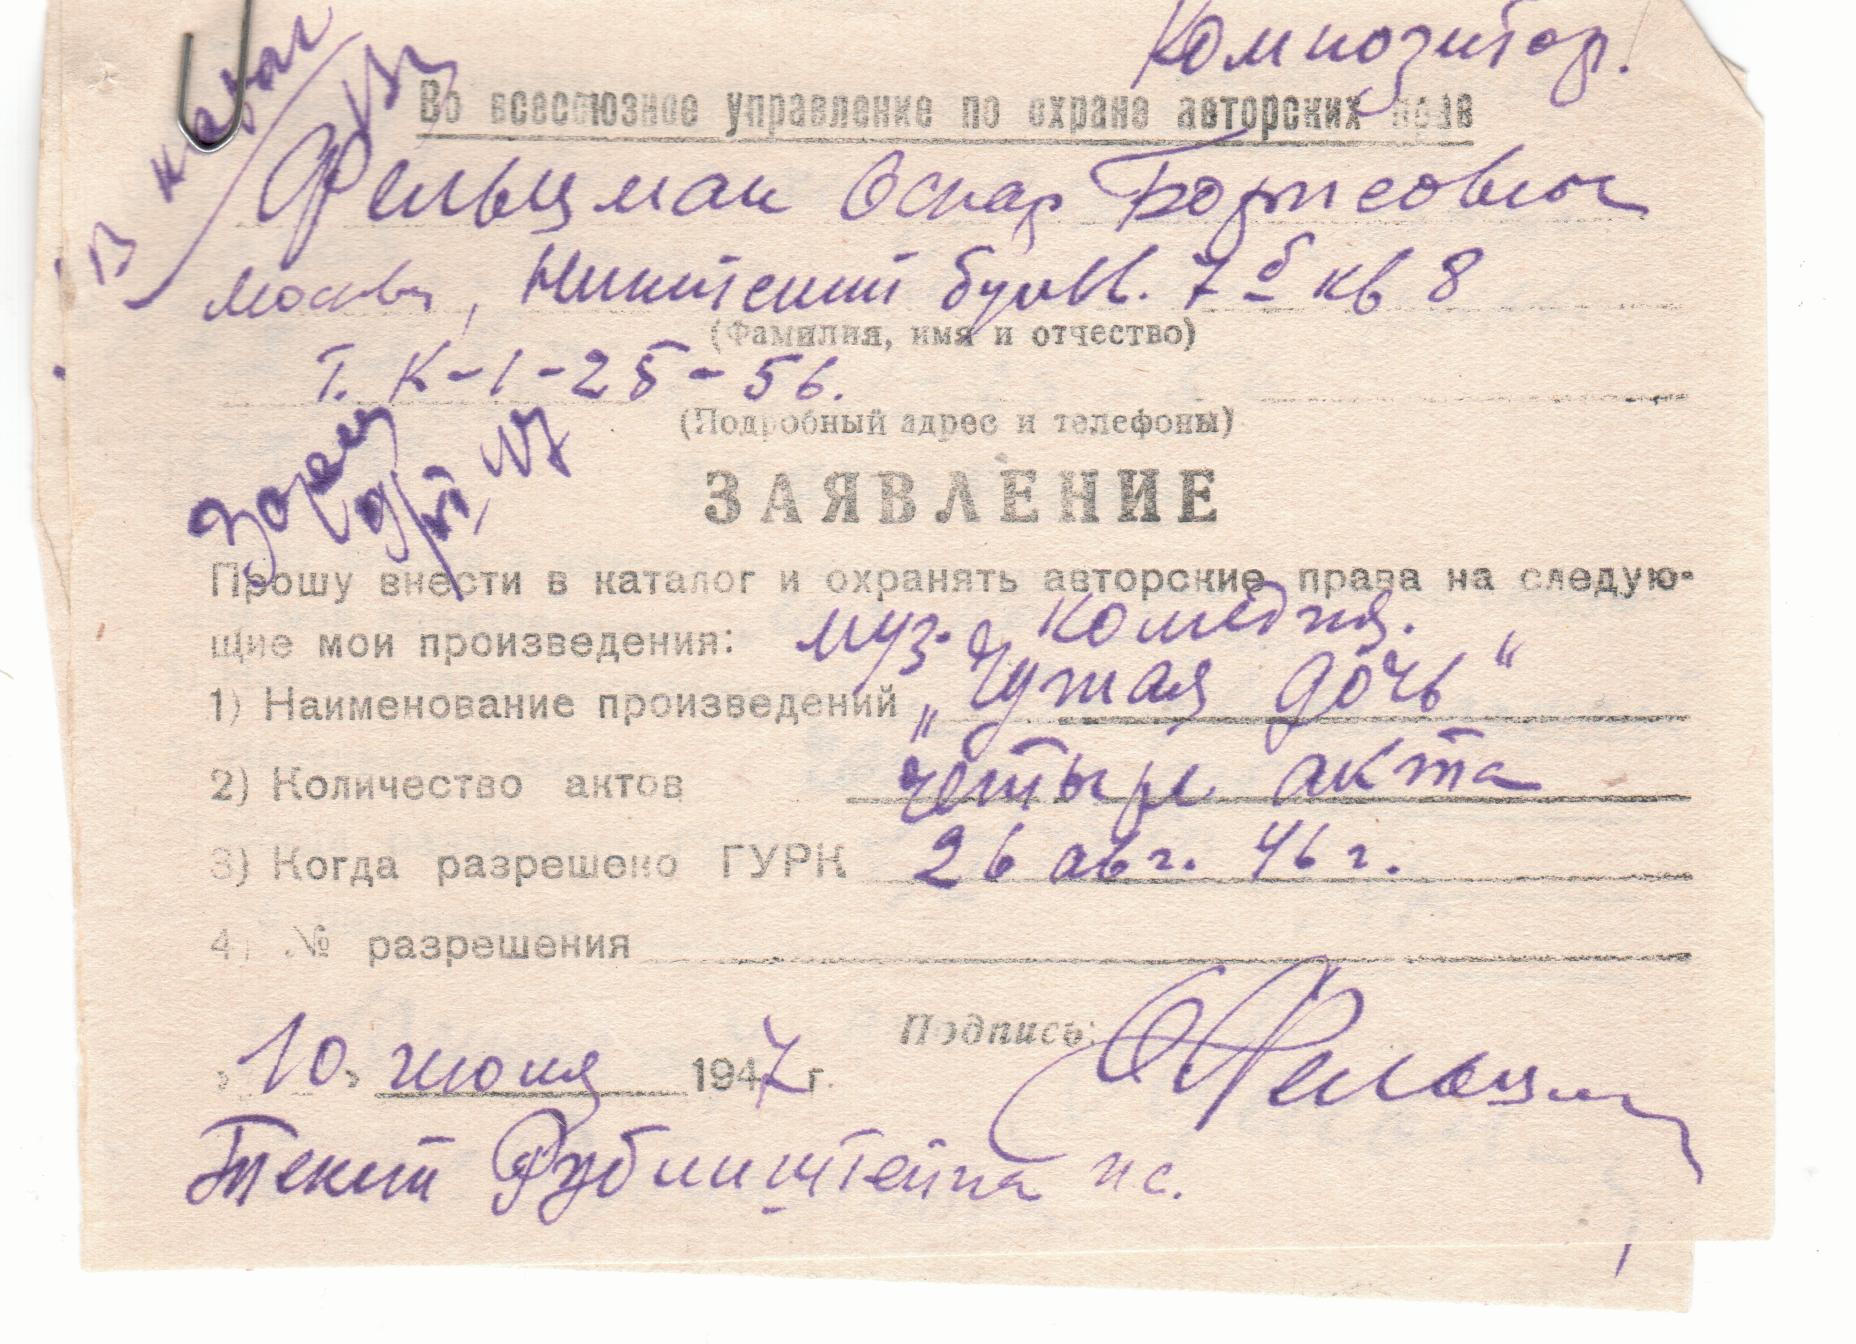 Композитор.
Во всесоюзное управление по охране авторских прав
Фельцман Оскар Борисович
Москва, Никитский бульв. 7б кв 8
(Фамилия, имя и отчество)
Т. К-1-25-56.
(Подробный адрес и телефоны)
ЗАЯВЛЕНИЕ
Прошу внести в каталог и охранять авторские права на следую-
щие мои произведения: муз. комедия.
1) Наименование произведений „Чужая дочь“
2) Количество актов четыре акта
3) Когда разрешено ГУРК 26 авг. 46 г.
4) № разрешения
«10» июня 1947 г. Подпись: О Фельцман
Текст Рублинштейна